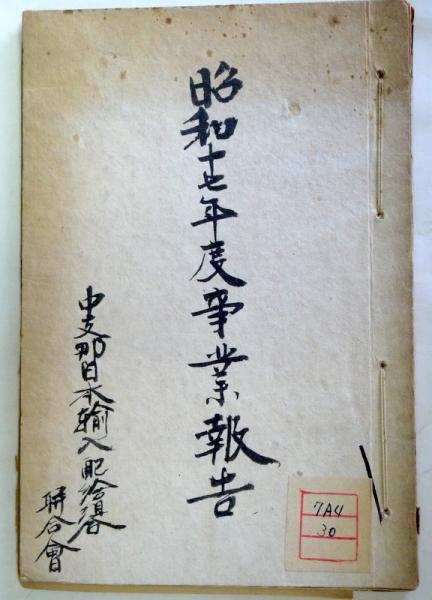 昭和十七年度事業報告
中支那日本輸入配給組合
聯合會
7A4
30